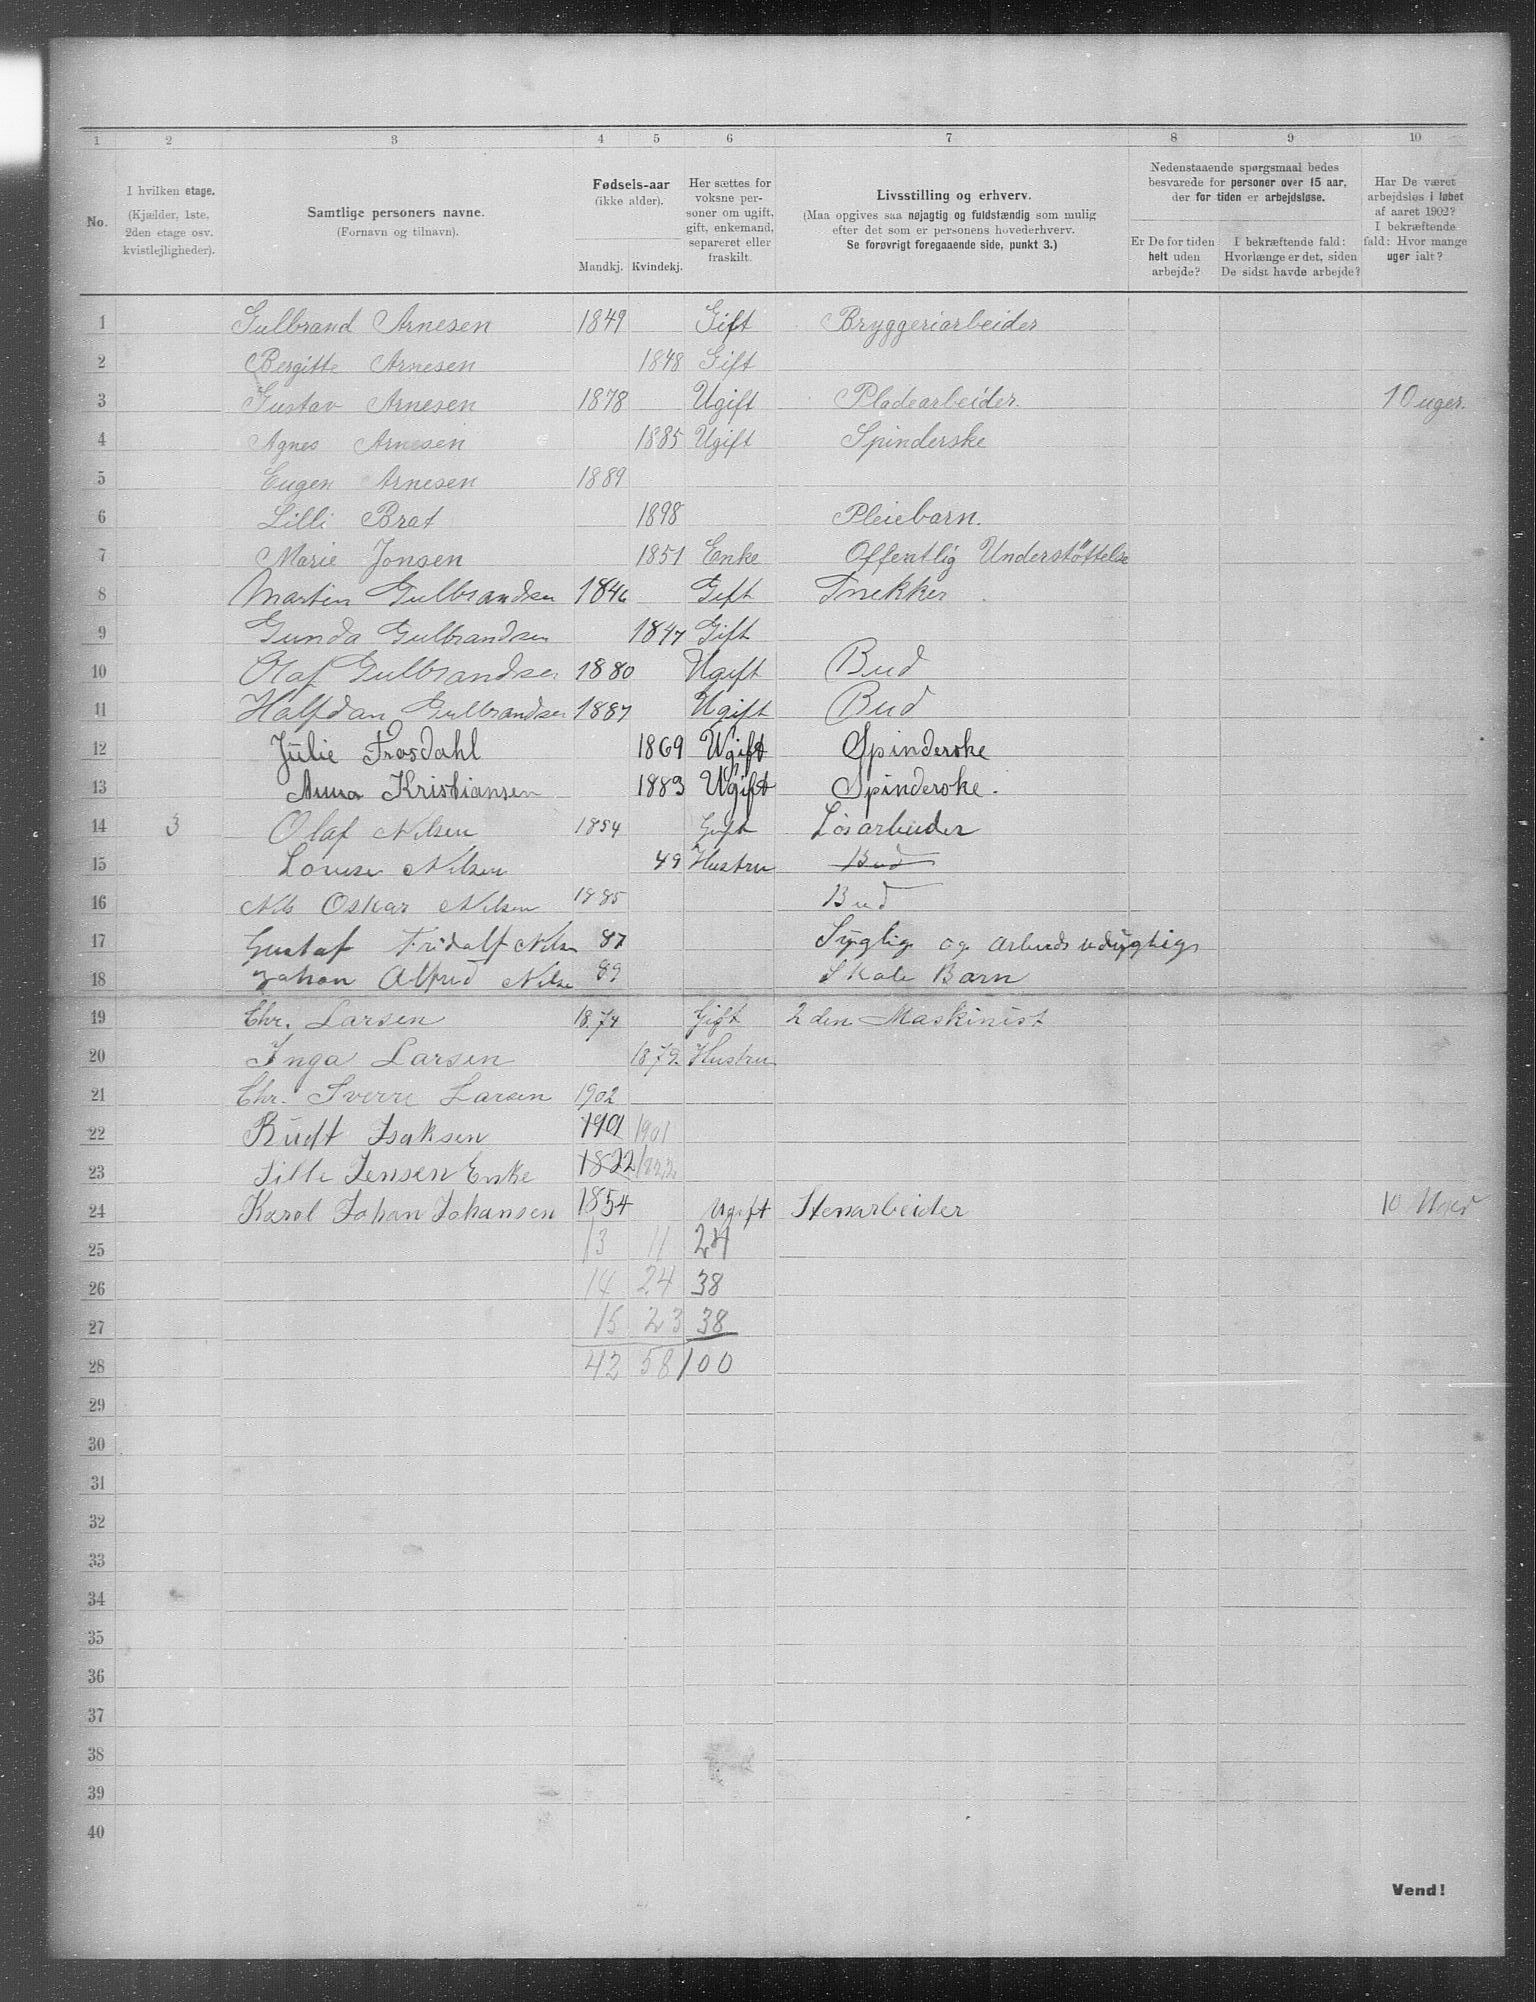 1 2 3 4 5 6 7 8 9 10
No.
I hvilken etage.
(Kjælder, 1ste,
2den etage osv.
kvistlejligheder).
Samtlige personers navne.
(Fornavn og tilnavn).
Fødsels-aar
(ikke alder).
Mandkj. Kvindekj.
Her sættes for
voksne per-
soner om ugift,
gift, enkemand,
separeret eller
fraskilt.
Livsstilling og erhverv.
(Maa opgives saa nøjagtig og fuldstændig som mulig
efter det som er personens hovederhverv.
Se forøvrigt foregaaende side, punkt 3.)
Nedenstaaende spørgsmaal bedes
besvarede for personer over 15 aar,
der for tiden er arbejdsløse.
Er De for tiden
helt uden
arbejde?
I bekræftende fald:
Hvorlænge er det, siden
De sidst havde arbejde?
Har De været
arbejdsløs i løbet
af aaret 1902?
I bekræftende
fald: Hvor mange
uger ialt?
1 Gulbrand Arnesen 1849 Gift Bryggeriarbeider
2 Bergitte Arnesen 1848 Gift
3 Gustav Arnesen 1878 Ugift Pladearbeider. 10 uger.
4 Agnes Arnesen 1885 Ugift Spinderske
5 Eugen Arnesen 1889
6 Lilli Brat 1898 Pleiebarn.
7 Marie Jonsen 1851 Enke Offentlig Understöttelse
8 Martin Gulbrandsen 1846 Gift Snekker
9 Gunda Gulbrandsen 1847 Gift
10 Olaf Gulbrandsen 1880 Ugift Bud
11 Halfdan Gulbrandsen 1887 Ugift Bud
12 Julie Frosdahl 1869 Ugift Spinderske
13 Anna Kristiansen 1883 Ugift Spinderske.
14 3 Olaf Nilsen 1854 Gift Løsarbeider
15 Lovise Nilsen 49 Hustru Bud
16 Nils Oskar Nilsen 1885 Bud
17 Gustaf Fridolf Nilsn 87 Syglig og arbeids udygtig
18 Johan Alfred Nilsn 89 Skole Barn
19 Chr. Larsen 1874 Gift 2den Maskinist
20 Inga Larsen 1879 Hustru
21 Chr. Sverre Larsen 1902
22 Rudt Isaksen 1901 1901
23 Sille Jensen Enke 1822 1822
24 Karol Johan Johansen 1854 Ugift Stenarbeider 10 Uger
25 13 11 24
26 14 24 38
27 15 23 38
28 42 58 100
29
30
31
32
33
34
35
36
37
38
39
40
Vend!